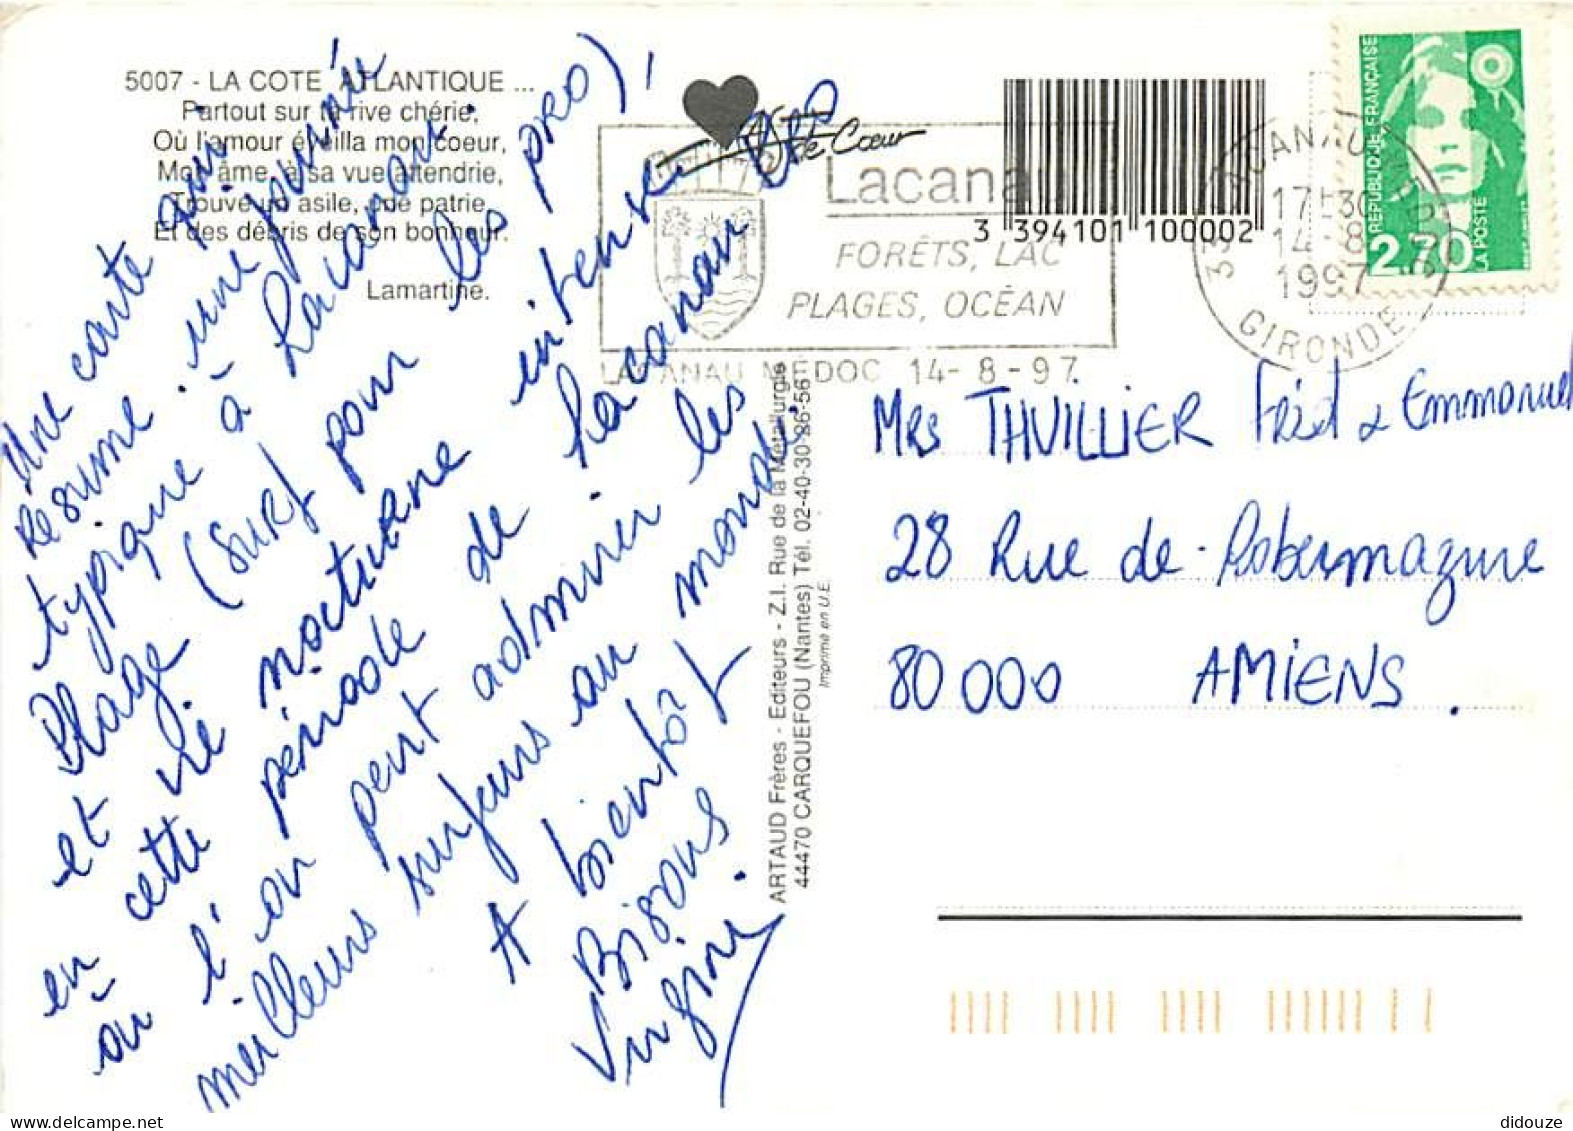 5007 - LA COTE ATLANTIQUE ...
Partout sur ta rive chérie,
Où l'amour éveilla mon coeur,
Mon âme, à sa vue attendrie,
Trouve un asile, une patrie,
Et des débris de son bonheur.
Lamartine.
Une carte qui
résume une journée
typique à Lacanau.
Plage (surf pour les pro),
et vie nocturne intense
en cette période de Lacanau
où l'on peut admirer les
meilleurs surfeurs au monde.
A bientôt
Bisous
Virginie
ARTAUD Frères - Editeurs - Z.I. Rue de la Métallurgie
44470 CARQUEFOU (Nantes) Tél. 02-40-30-26-56
Imprimé en U.E.
de Coeur
Lacanau
FORÊTS, LAC
PLAGES, OCÉAN
LACANAU MEDOC 14-8-97
3 394101 100002
33 LACANAU
17H30
14-8
1997
GIRONDE
REPUBLIQUE FRANÇAISE
2,70
LA POSTE
Mrs THUILLIER Fred & Emmanuel
28 Rue de Robermazure
80 000 AMIENS.
didouze